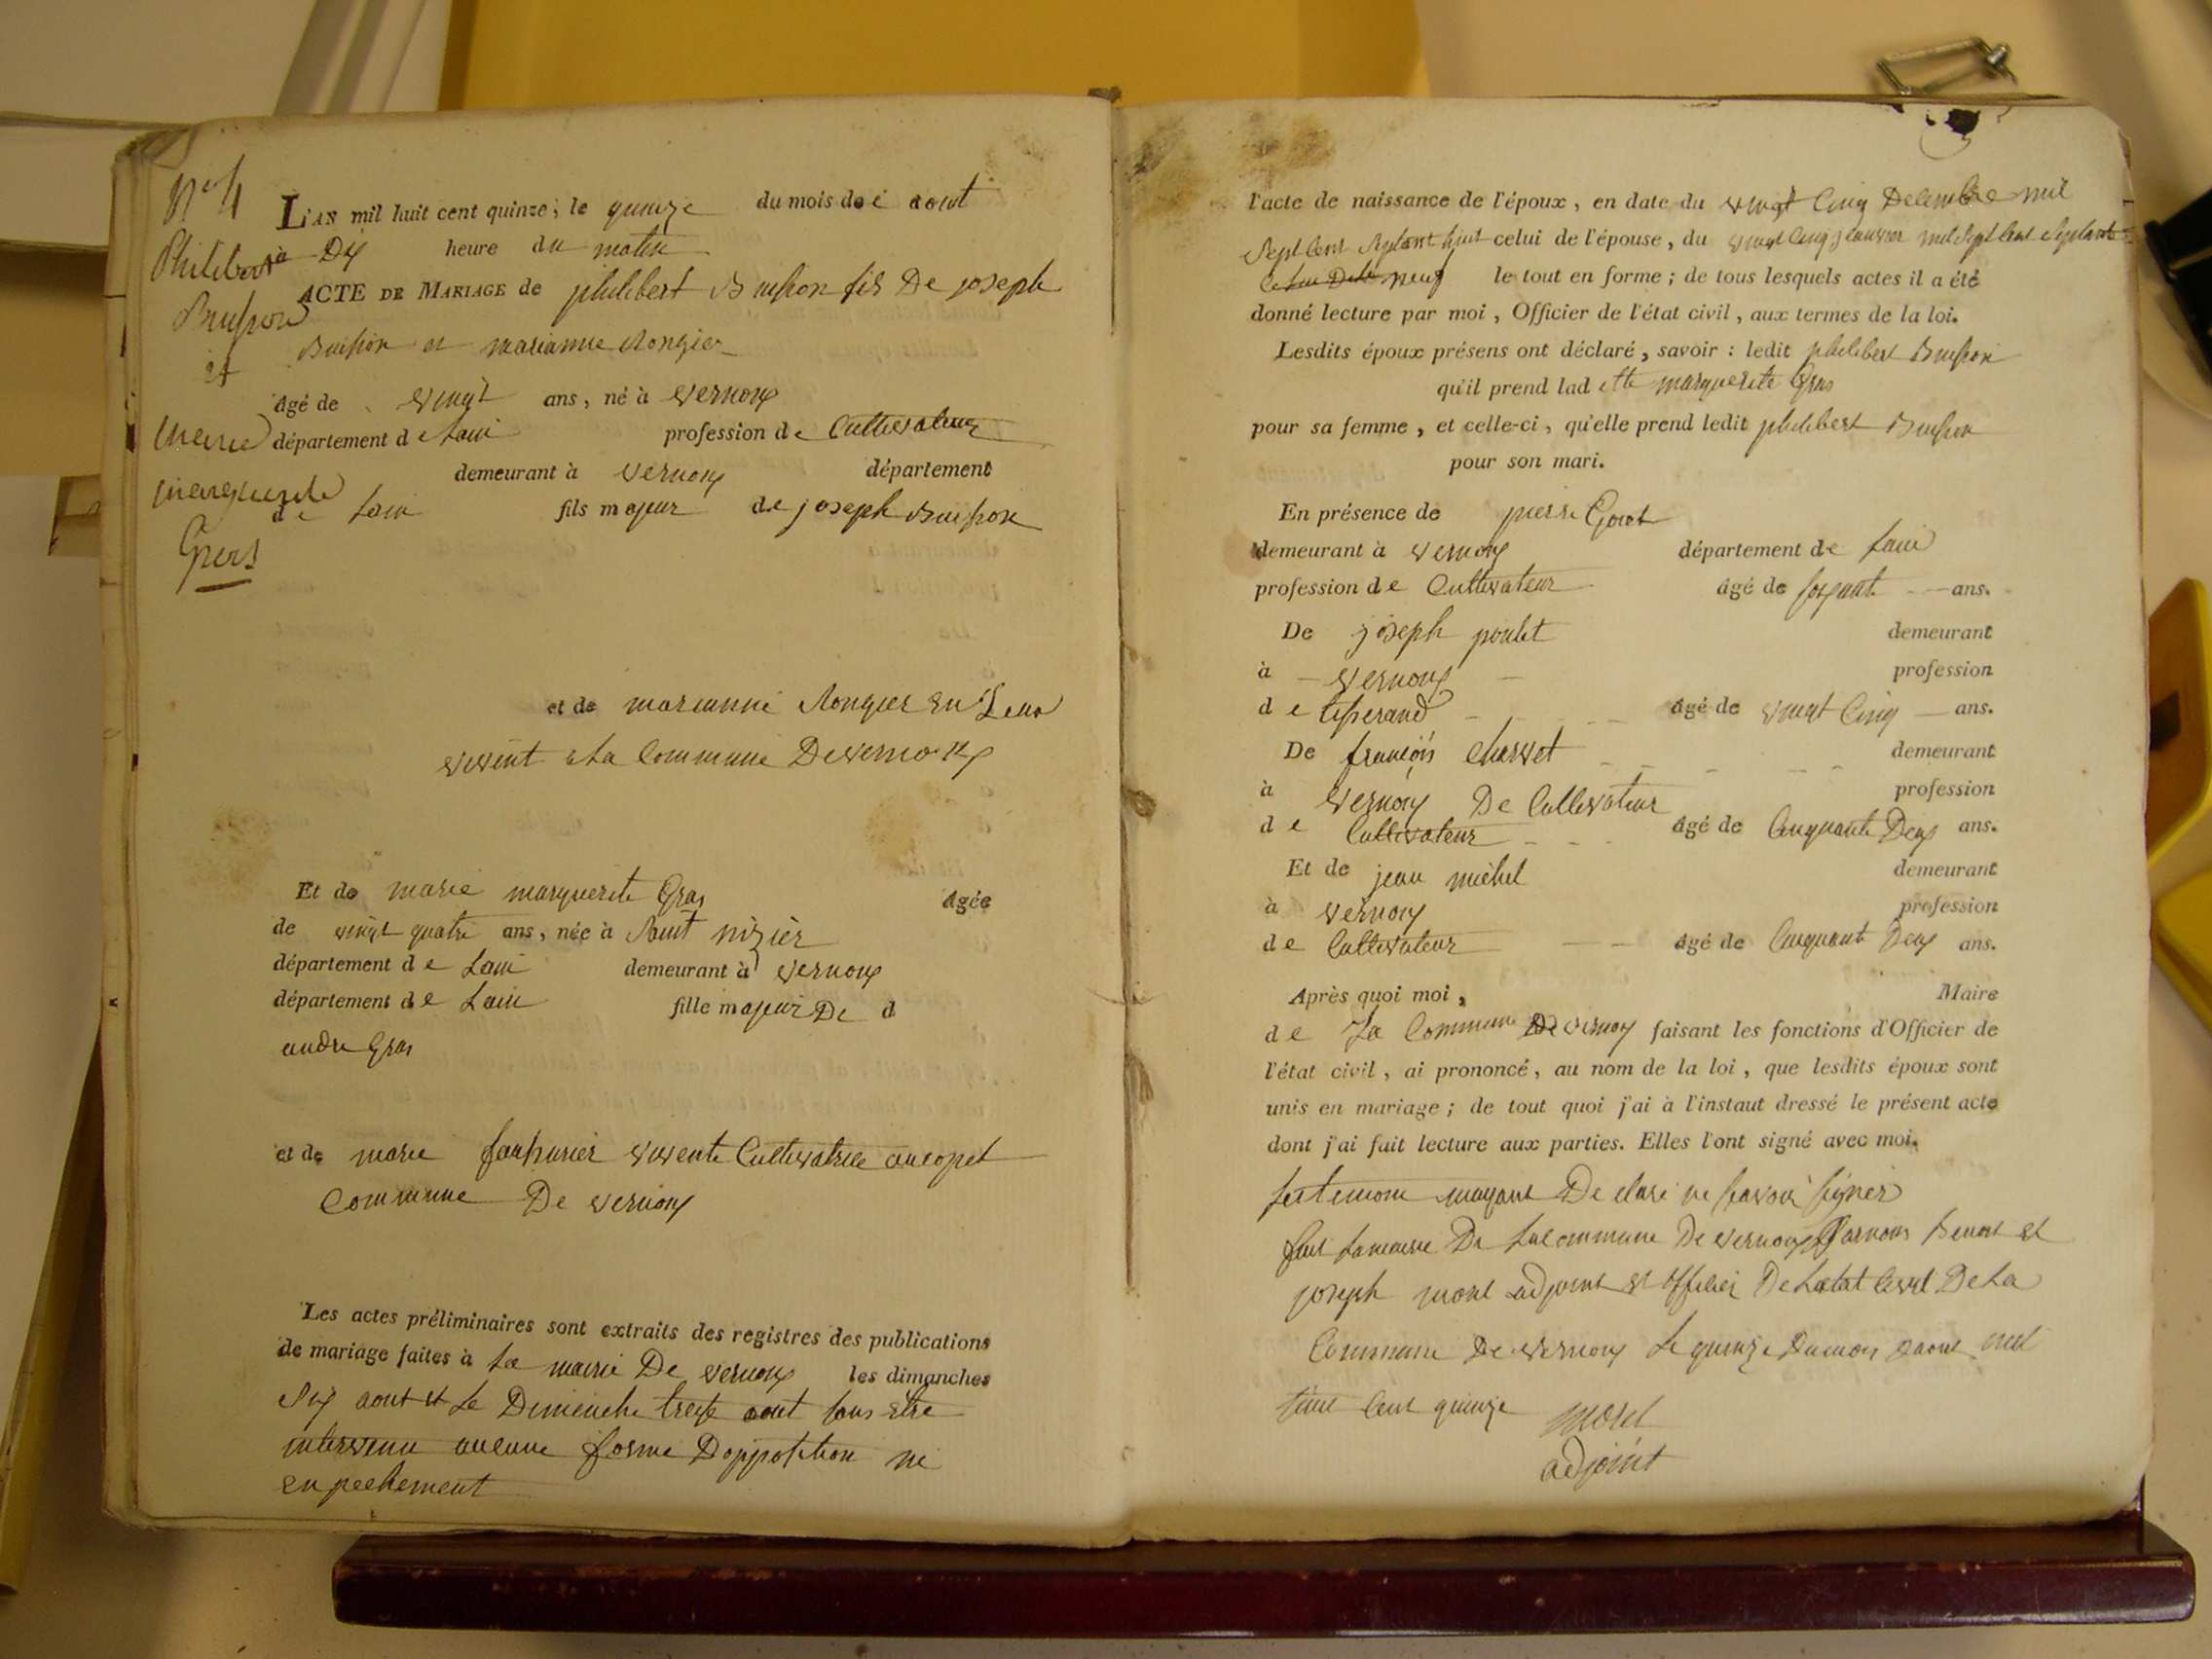 N° 4
Philibert
Buisson
et
marie
marguerite
Gras
L'AN mil huit cent quinze, le quinze du mois de aout
à Dix heure du matin
ACTE DE MARIAGE de philibert Buisson fils De joseph
Buisson et marianne Rongier
âgé de vingt ans, né à vernoux
département de Lain profession de Cultivateur
demeurant à vernoux département
de Lain fils majeur de joseph Buisson
et de marianne Rongier en
vivent a La Commune De vernoux
Et de marie marguerite Gras âgée
de vingt quatre ans, née à Saint nizier
département de Lain demeurant à vernoux
département de Lain fille majeur De d
andre Gras
et de marie vivente Cultivatrice
Commune De vernoux
Les actes préliminaires sont extraits des registres des publications
de mariage faites à La mairie De vernoux les dimanches
Six aout et Le Dimenche treise aout sans etre
intervenu aucune forme Dopposition ni
enpechement
l'acte de naissance de l'époux, en date du vingt Cinq Decembre mil
Sept Cent Septant huit celui de l'épouse, du vingt Cinq janvier mil Sept Cent Septante
neuf le tout en forme ; de tous lesquels actes il a été
donné lecture par moi, Officier de l'état civil, aux termes de la loi.
Lesdits époux présens ont déclaré, savoir : ledit philibert Buisson
qu'il prend ladette marguerite Gras
pour sa femme, et celle-ci, qu'elle prend ledit philibert Buisson
pour son mari.
En présence de pierre Goret
demeurant à vernoux département de Lain
profession de Cultivateur âgé de soixante ans.
De joseph poulet demeurant
à vernoux profession
de tisserand âgé de vingt Cinq ans.
De françois Charvet demeurant
à vernoux De Cultivateur profession
de Cultivateur âgé de Cinquante Deux ans.
Et de jean michel demeurant
à vernoux profession
de Cultivateur âgé de Cinquante Deux ans.
Après quoi moi, Maire
de La Commune De vernoux faisant les fonctions d'Officier de
l'état civil, ai prononcé, au nom de la loi, que lesdits époux sont
unis en mariage ; de tout quoi j'ai à l'instaut dressé le présent acte
dont j'ai fait lecture aux parties. Elles l'ont signé avec moi.
De clare ne savoir signer
De La commune De vernoux Benoit et
joseph morel adjoint et officier De Letat Civil De La
Commune De vernoux Le quinze Du mois Daout mil
huit Cent quinze morel
adjoint